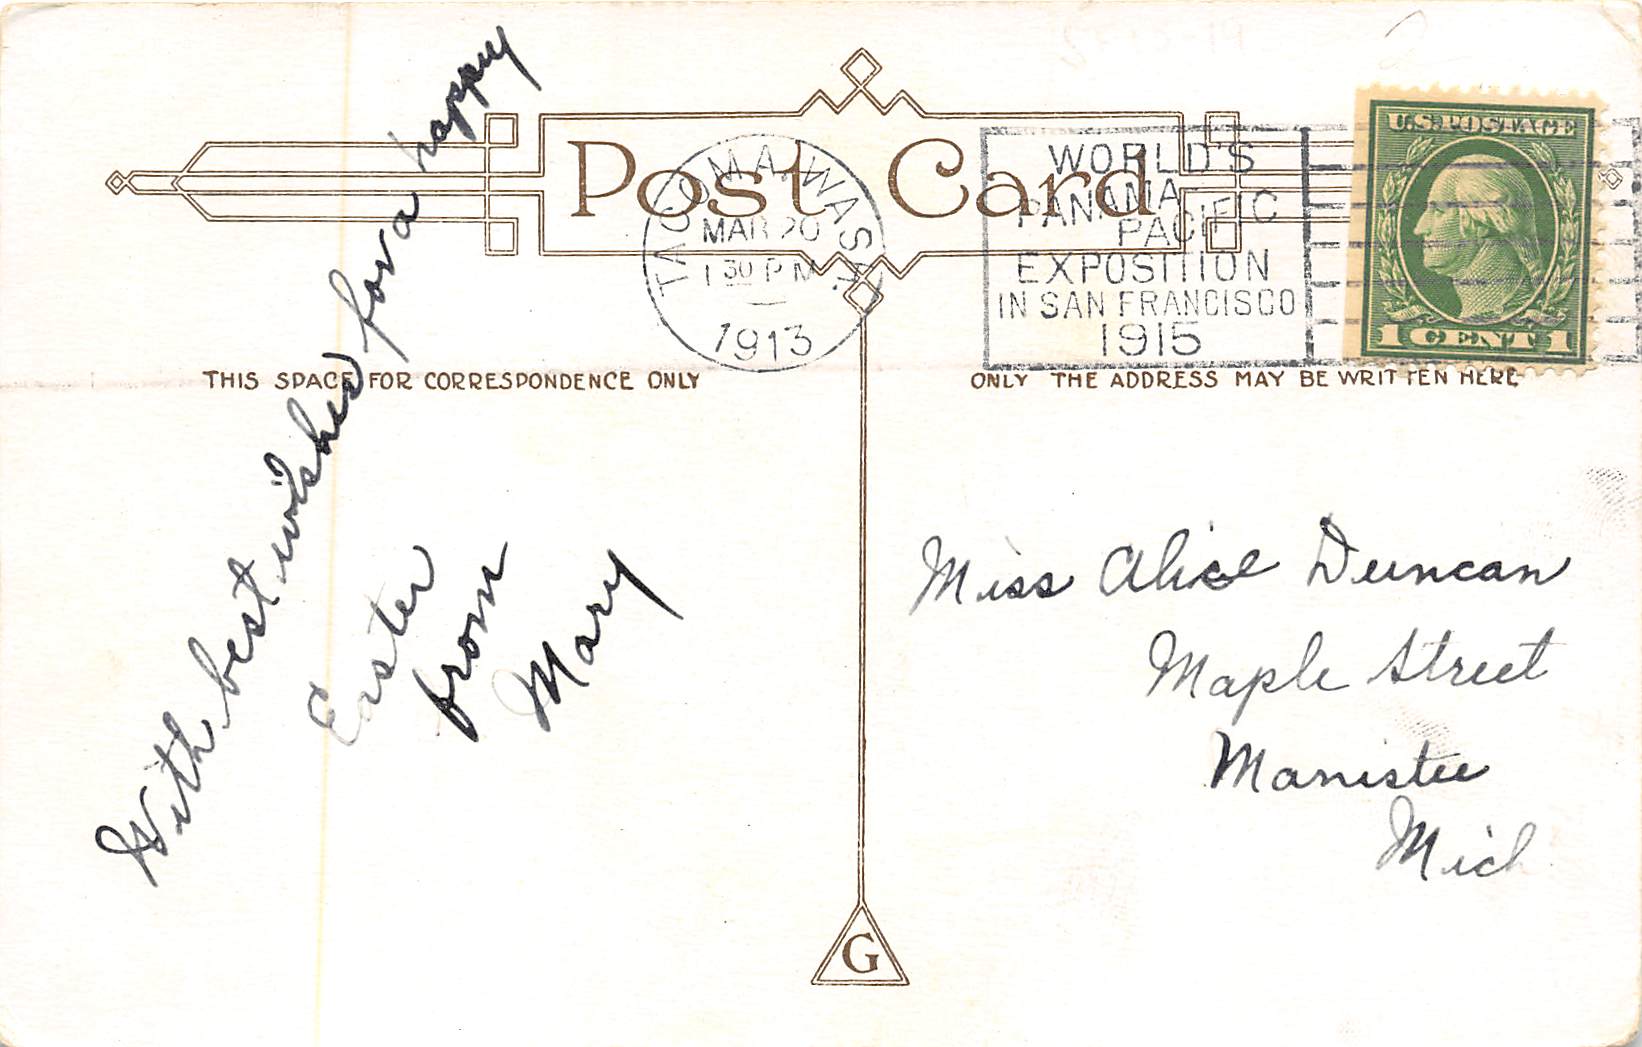 Post Card
TACOMA, WASH.
MAR 20
1 30 P M
1913
WORLD'S
PANAMA
PACIFIC
EXPOSITION
IN SAN FRANCISCO
1915
U.S. POSTAGE
1 CENT 1
THIS SPACE FOR CORRESPONDENCE ONLY
ONLY THE ADDRESS MAY BE WRITTEN HERE
With best wishes for a happy
Easter
from
Mary
Miss Alice Duncan
Maple Street
Manistee
Mich
G